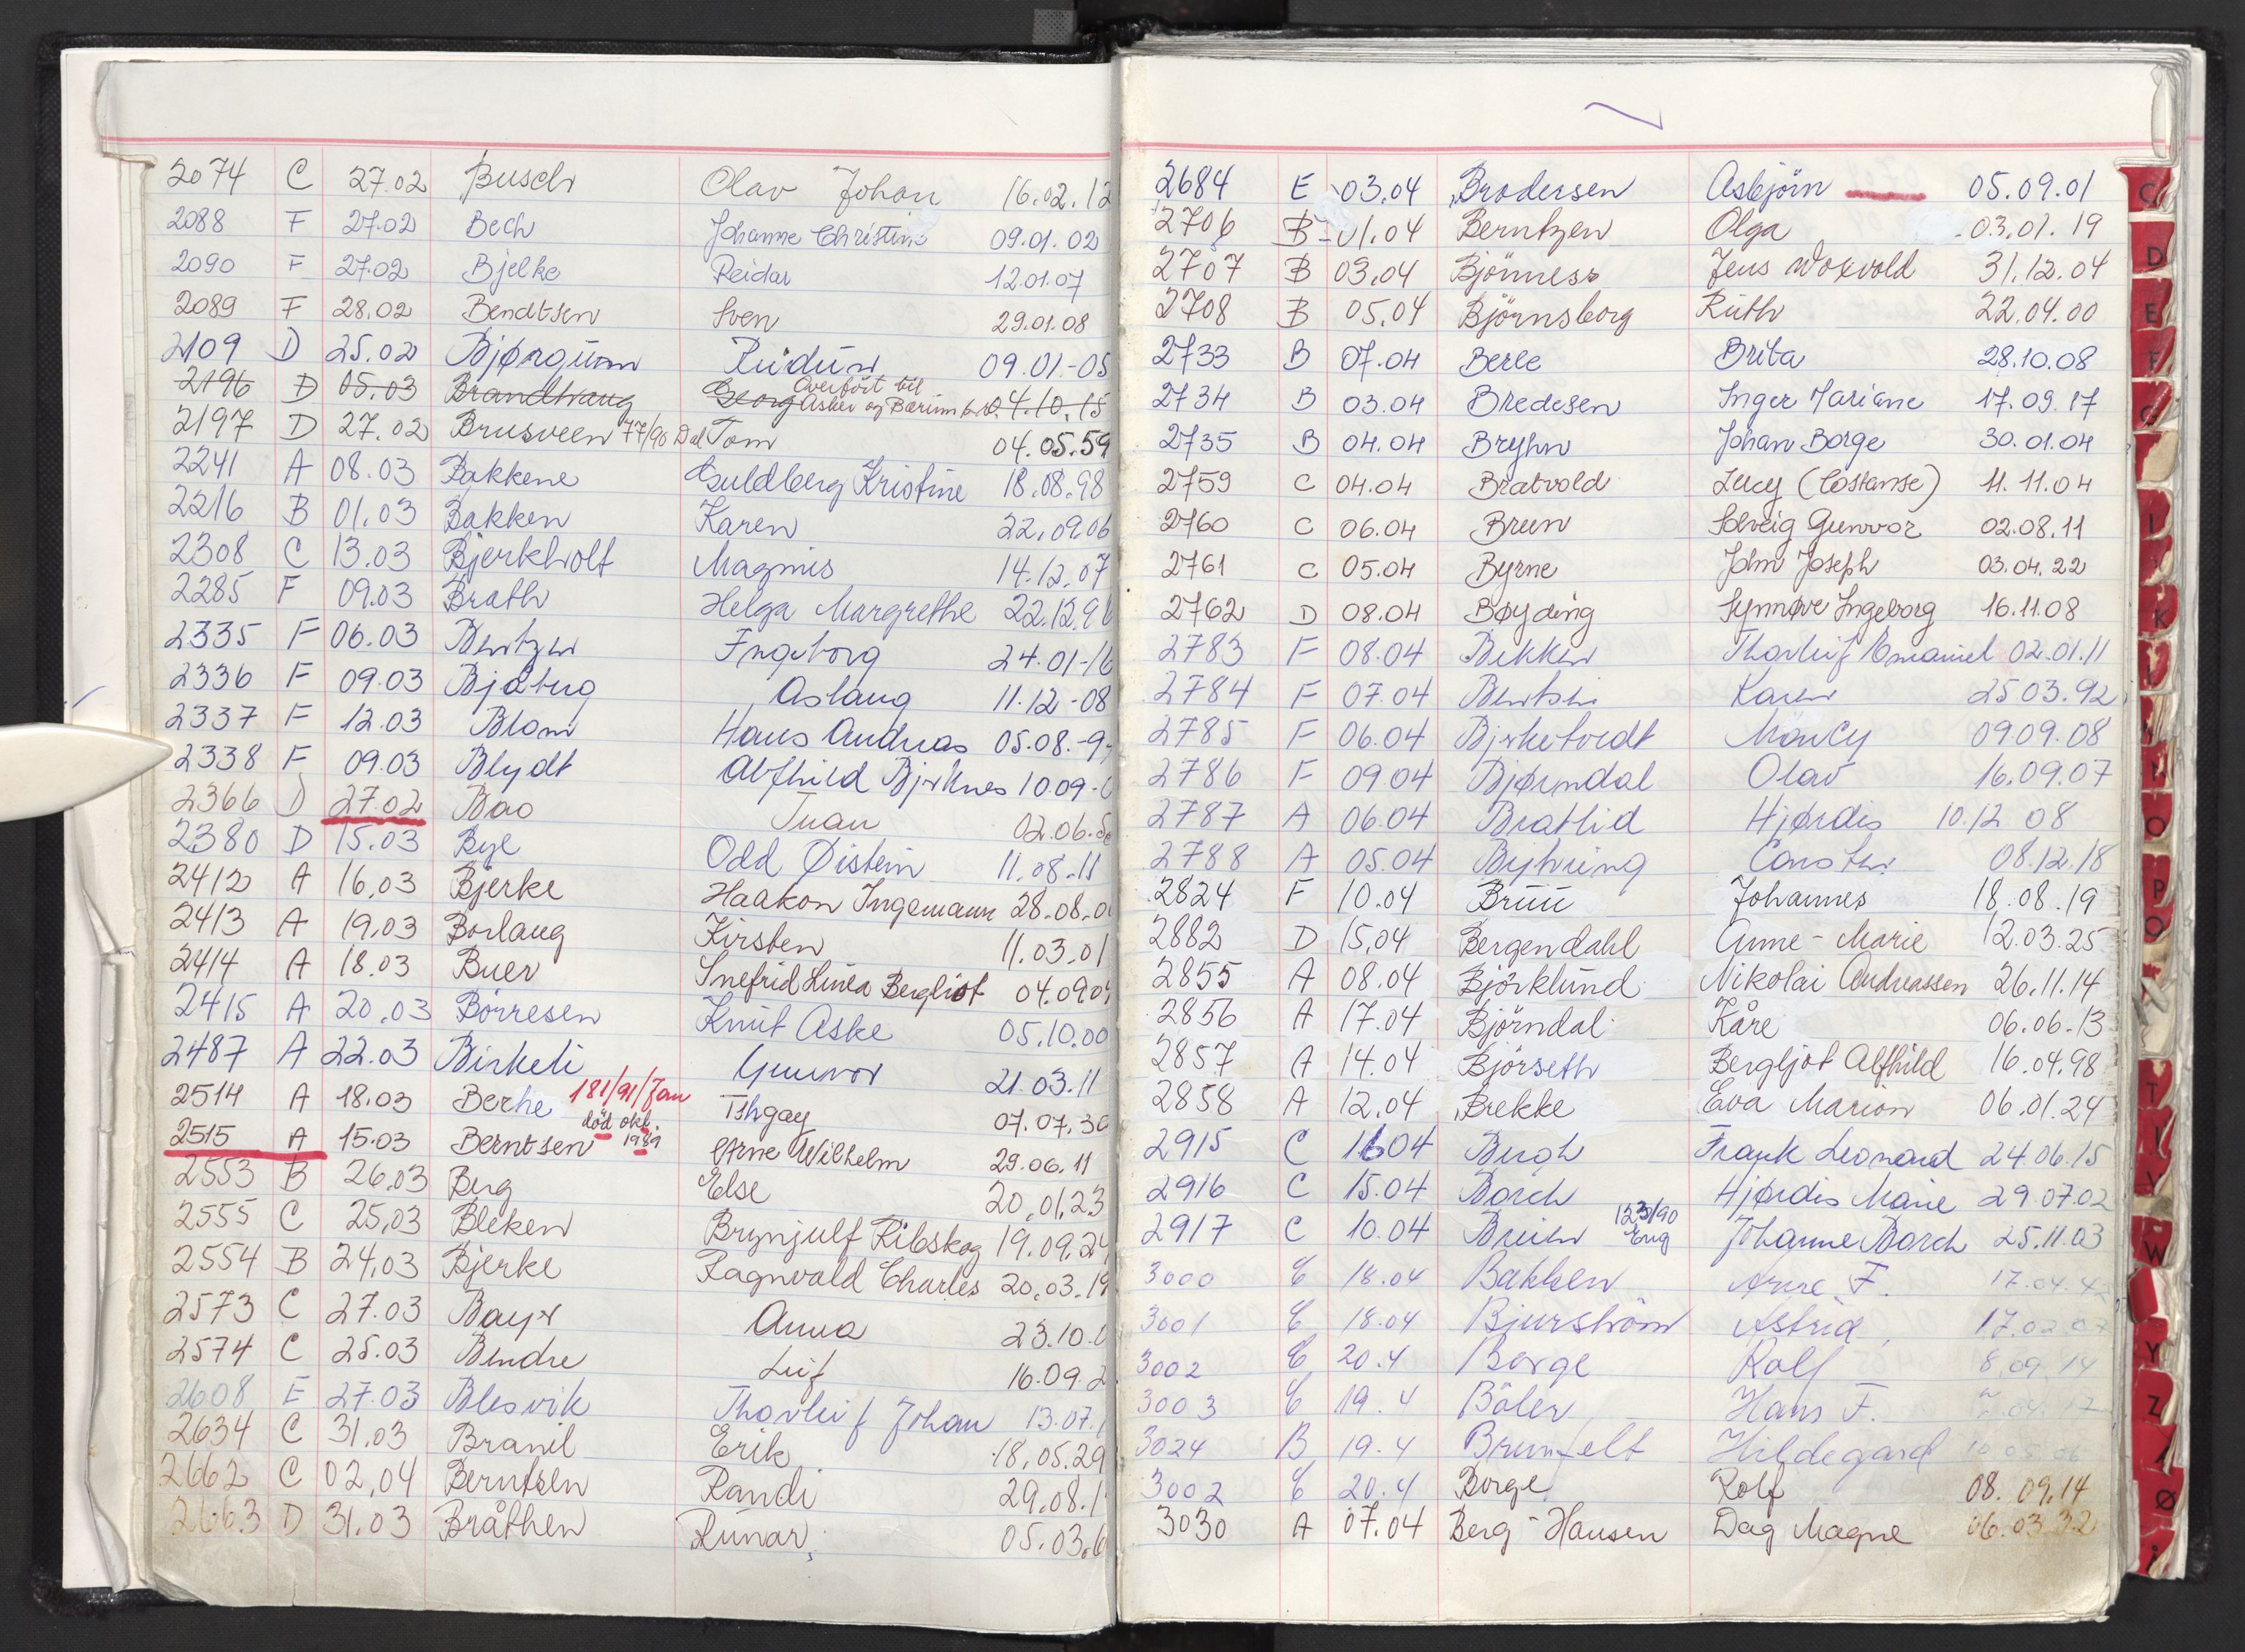 2074 C 27.02 Busch Olav Johan 16.02.12
2088 F 27.02 Bech Johanne Christine 09.01.02
2090 F 27.02 Bjelke Reidar 12.01.07
2089 F 28.02 Bendtsen Sven 29.01.08
2109 D 25.02 Bjørgum 09.01.-05
2196 D 05.03 Brandhaug Georg Overført til Asker og Bærum 04.10.15
2197 D 27.02 Brusveen 77/90 Dal Tom 04.05.59
2241 A 08.03 Bakkene Guldberg Kristine 18.08.98
2216 B 01.03 Bakken Karen 22.09.06
2308 C 13.03 Bjerkholt Magnus 14.12.07
2285 F 09.03 Brath Helga Margrethe 22.12.9
2335 F 06.03 Berntzen Ingeborg 24.01-16
2336 F 09.03 Bjåberg Aslaug 11.12-08
2337 F 12.03 Blom Hans Andreas 05.08.-9
2338 F 09.03 Blydt Alfhild Bjerknes 10.09-
2366 D 27.02 Bao Tuan 02.06.
2380 D 15.03 Bye Odd Øistein 11.08.11
2412 A 16.03 Bjerke Haakon Ingemann 28.08.0
2413 A 19.03 Borlaug Kirsten 11.03.01
2414 A 18.03 Buer Snefrid Linea Bergliot 04.09.0
2415 A 20.03 Børresen Knut Aske 05.10.00
2487 A 22.03 Birkeli Gunvor 21.03.11
2514 A 18.03 Berhe 181/91/Jan Tshgay 07.07.30
2515 A 15.03 Berntsen død okt. 1989 Arne Wilhelm 29.06.11
2553 B 26.03 Berg Else 20.01.23
2555 C 25.03 Bleken Brynjulf Ribskog 19.09.24
2554 B 24.03 Bjerke Ragnvald Charles 20.03.19
2573 C 27.03 Bayer Anna 23.10.
2574 C 25.03 Bendre Leif 16.09.2
2608 E 27.03 Blesvik Thorleif Johan 13.07.
2634 C 31.03 Branil Erik 18.05.29
2662 C 02.04 Berntsen Randi 29.08.1
2663 D 31.03 Bråthen Runar 05.03.6
2684 E 03.04 Brodersen Asbjørn 05.09.01
2706 B 01.04 Berntzen Olga 03.01.19
2707 B 03.04 Bjönness Jens Woxvold 31.12.04
2708 B 05.04 Björnsborg Ruth 22.04.00
2733 B 07.04 Berle Brita 28.10.08
2734 B 03.04 Bredesen Inger Mariane 17.09.17
2735 B 04.04 Bryhn Johan Borge 30.01.04
2759 C 04.04 Bratvold Lucy (Costanse) 11.11.04
2760 C 06.04 Brun Solveig Gunvor 02.08.11
2761 C 05.04 Byrne John Joseph 03.04.22
2762 D 08.04 Bøyding Synnøve Ingeborg 16.11.08
2783 F 08.04 Bekken Thorleif Emanuel 02.01.11
2784 F 07.04 Karen 25.03.92
2785 F 06.04 Bjerketvedt 09.09.08
2786 F 09.04 Bjørndal Olav 16.09.07
2787 A 06.04 Bratlid Hjørdis 10.12 08
2788 A 05.04 Byhring Carsten 08.12.18
2824 F 10.04 Bruu Johannes 18.08.19
2882 D 15.04 Bergendahl Anne-Marie 12.03.25
2855 A 08.04 Björklund Nikolai Andreassen 26.11.14
2856 A 17.04 Björndal Kåre 06.06.13
2857 A 14.04 Bjørseth Bergljot Alfhild 16.04.98
2858 A 12.04 Brekke Eva Marion 06.01.24
2915 C 1604 Bergh Frank Leonard 24.06.15
2916 C 15.04 Borch Hjørdis Marie 29.07.02
2917 C 10.04 Breien 123/90 Eng Johanne Borch 25.11.03
3000 C 18.04 Bakken Arne F. 17.04.
3001 C 18.04 Bjurström Astrid 17.02.
3002 C 20.4 Borge Rolf 8.09.14
3003 C 19.4 Böler Hans F.
3024 B 19.4 Brunfelt Hildegard
3002 C 20.4 Borge Rolf 08.09.14
3030 A 07.04 Berg-Hansen Dag Magne 06.03.32
C
D
E
F
G
I
K
L
N
O
P
T
V
W
Y
Z
Ø